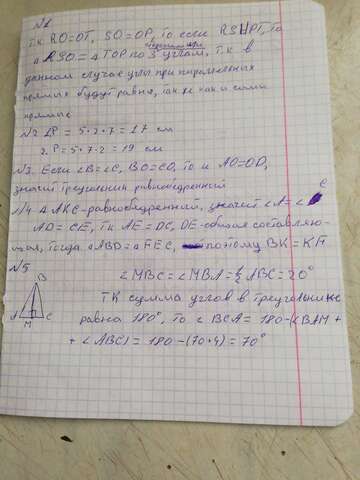 №1
Т.К. RO=OT, SO=OP, то если RS∥PT, то
△RSO=△TOP по 3 углам, т.к в
данном случае углы при параллельных
прямых будут равна, так же как и сами
прямые
№2. 1.P = 5+7 = 17 см
2. P = 5+7+2 = 19 см
№3. Если ∠B=∠C, BO=CO, то и AO=OD,
значит треугольник равнобедренный
№4. △AKC-равнобедренный, значит ∠A=∠C
AD=CE, тк AE=DC, DE-общая составляю-
щая, тогда △ABD=△FEC, поэтому BK=KF
№5
∠MBC=∠MBA=½ABC=20°
ТК сумма углов в треугольнике
равна 180°, то ∠BCA=180-(∠BAM+
+∠ABC)=180-(70+4)=70°
B
A M C